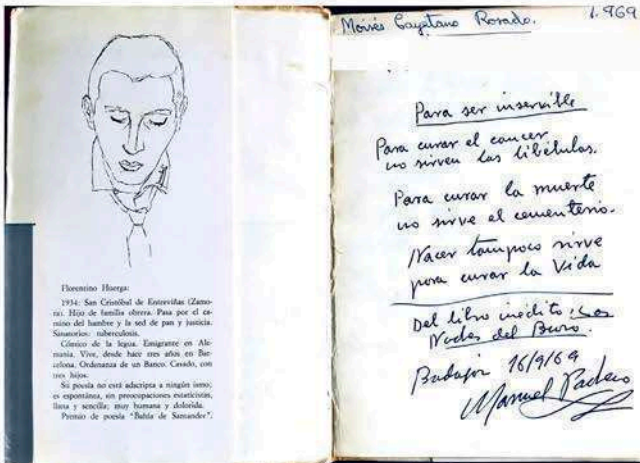 Florentino Huerga:
1934: San Cristóbal de Entreviñas (Zamo-
ra). Hijo de familia obrera. Pasa por el ca-
mino del hambre y la sed de pan y justicia.
Sanatorios: tuberculosis.
Cómico de la legua. Emigrante en Ale-
mania. Vive, desde hace tres años en Bar-
celona. Ordenanza de un Banco. Casado, con
tres hijos.
Su poesía no está adscripta a ningún ismo;
es espontánea, sin preocupaciones estaticistas,
llana y sencilla; muy humana y dolorida.
Premio de poesía "Bahía de Santander".
Moisés Cayetano Rosado. 1.969
Para ser inservible
Para curar el cancer
no sirven las libélulas.
Para curar la muerte
no sirve el cementerio.
Nacer tampoco sirve
para curar la Vida
Del libro inédito: Las
Noches del Buro.
Badajoz 16/9/69
Manuel Pacheco